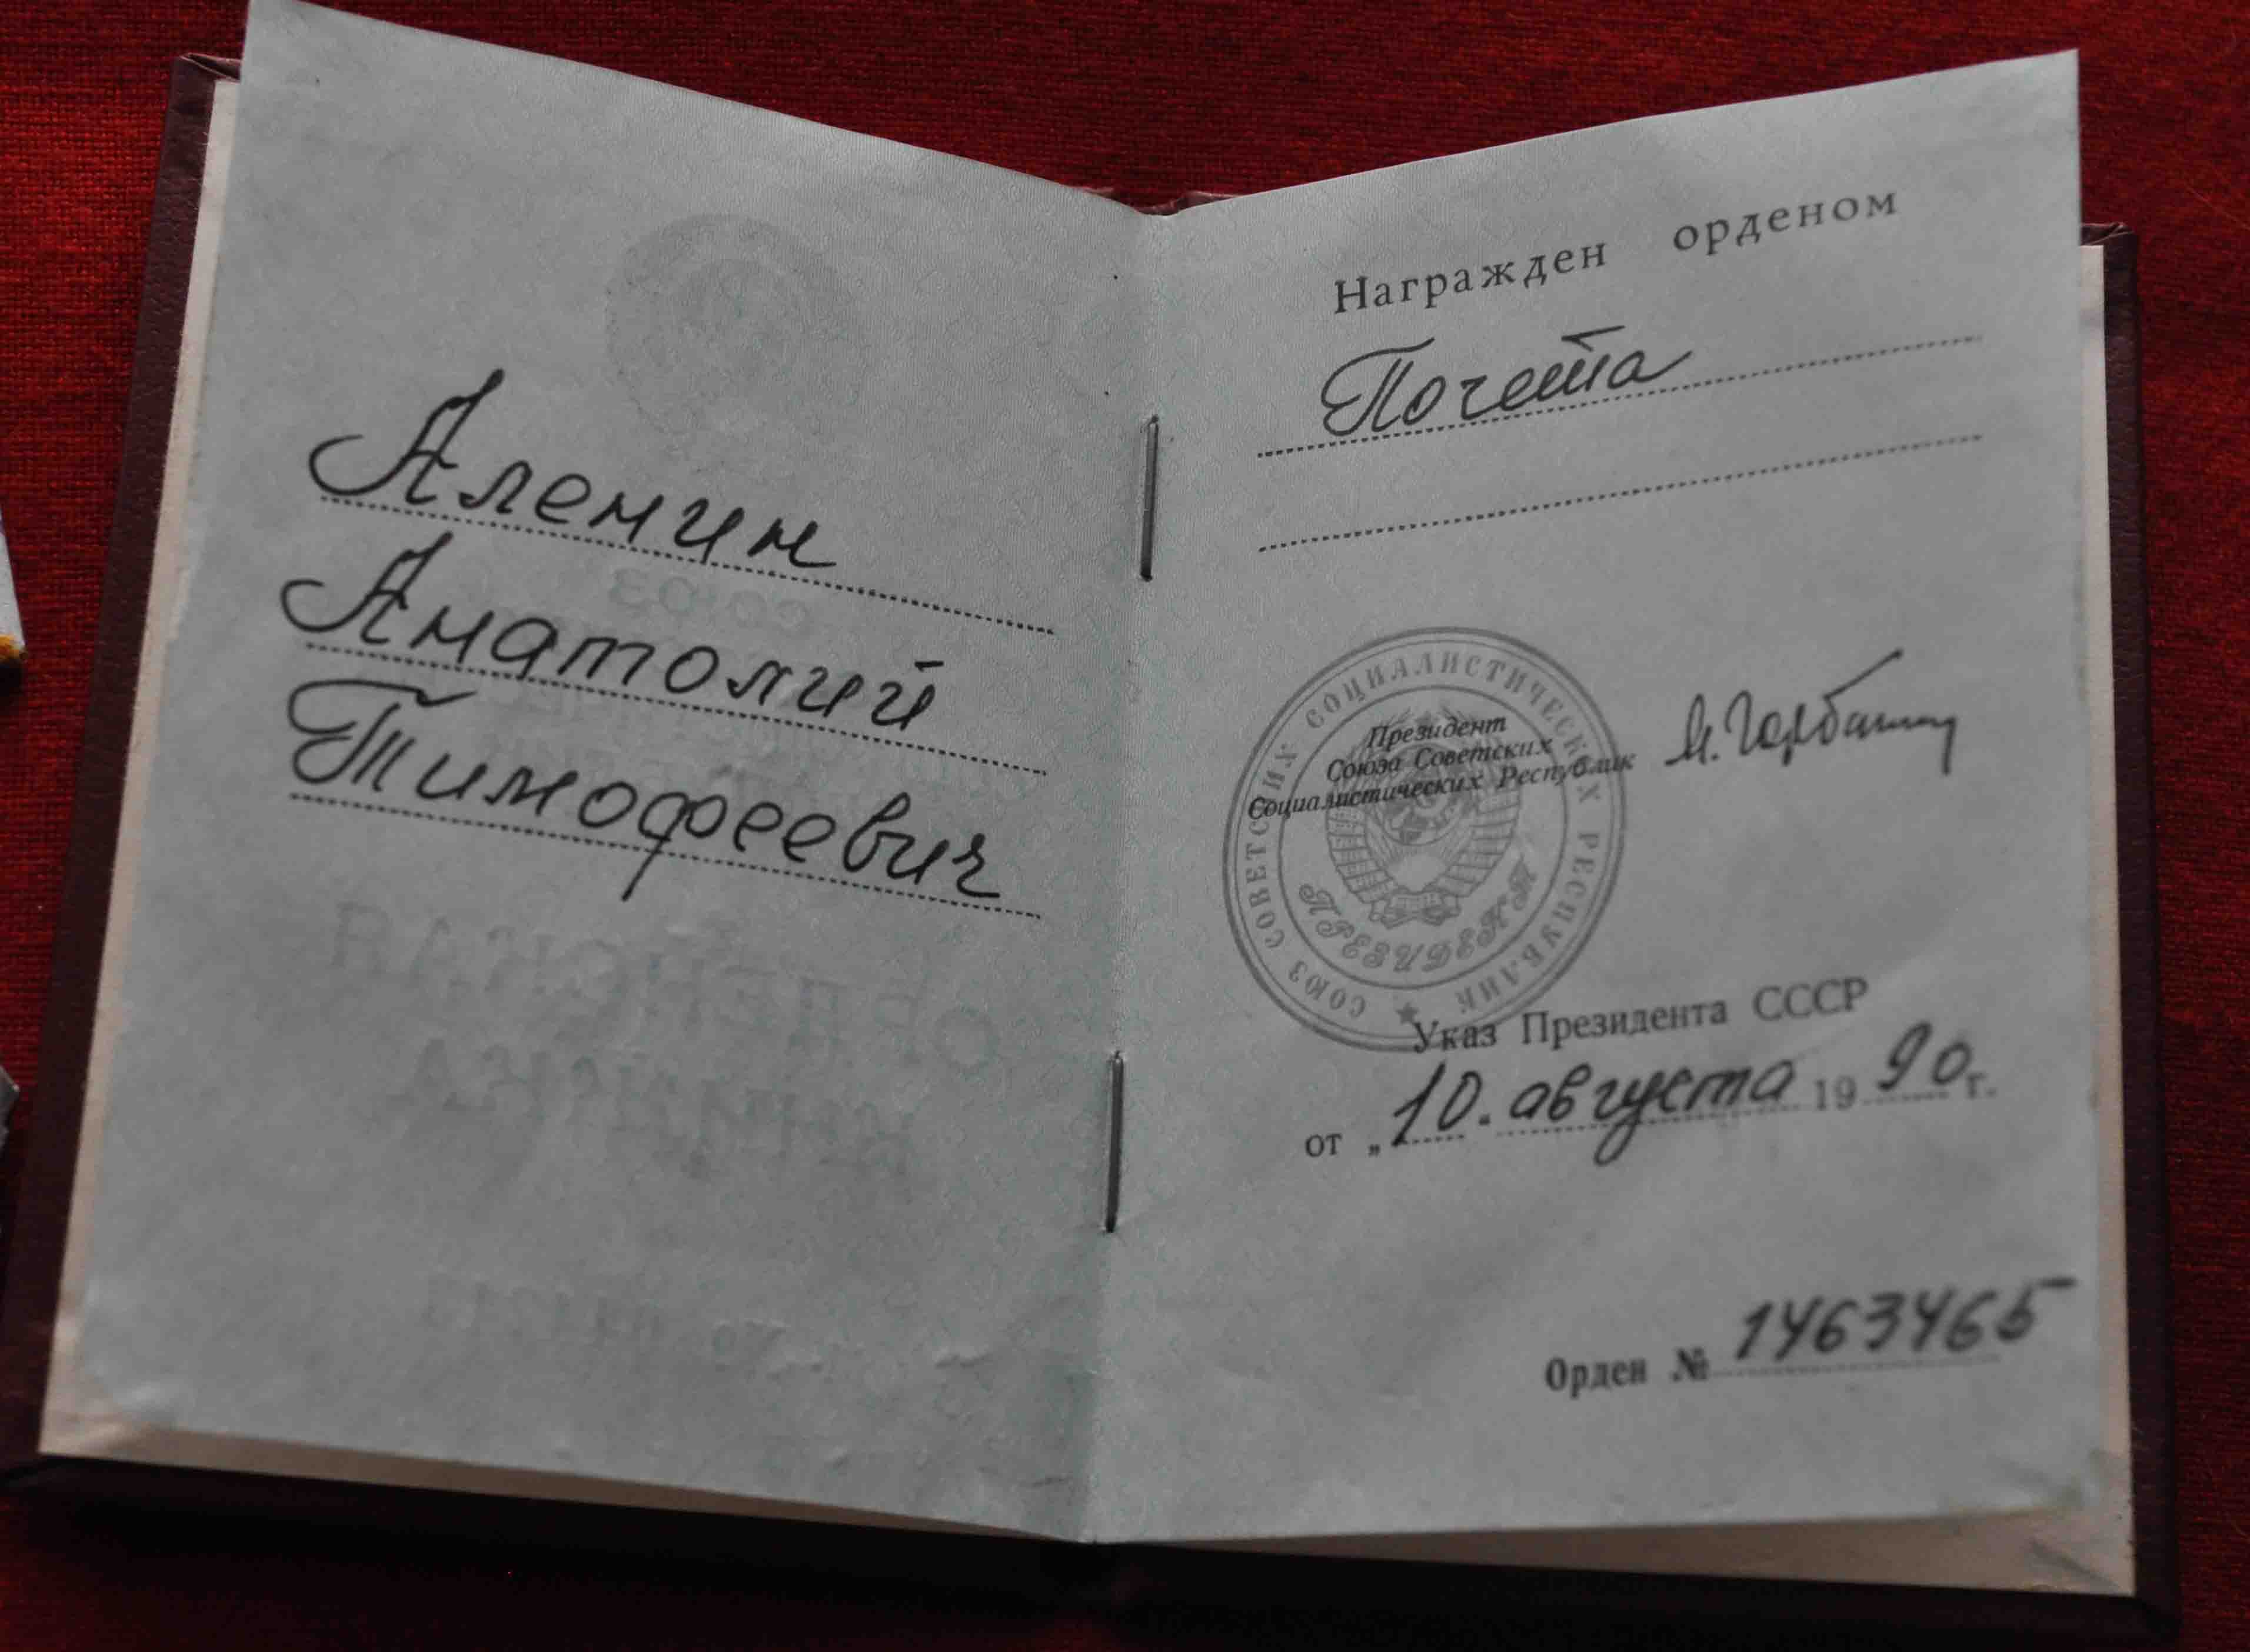 Аленин
Анатолий
Тимофеевич
Награжден орденом
Почета
СОЮЗ СОВЕТСКИХ СОЦИАЛИСТИЧЕСКИХ РЕСПУБЛИК
ПРЕЗИДЕНТ
Президент
Союза Советских
Социалистических Республик
М. Горбачев
Указ Президента СССР
от „10. августа 1990 г.
Орден № 1463465
СОЮЗ
ОРДЕНСКАЯ
КНИЖКА